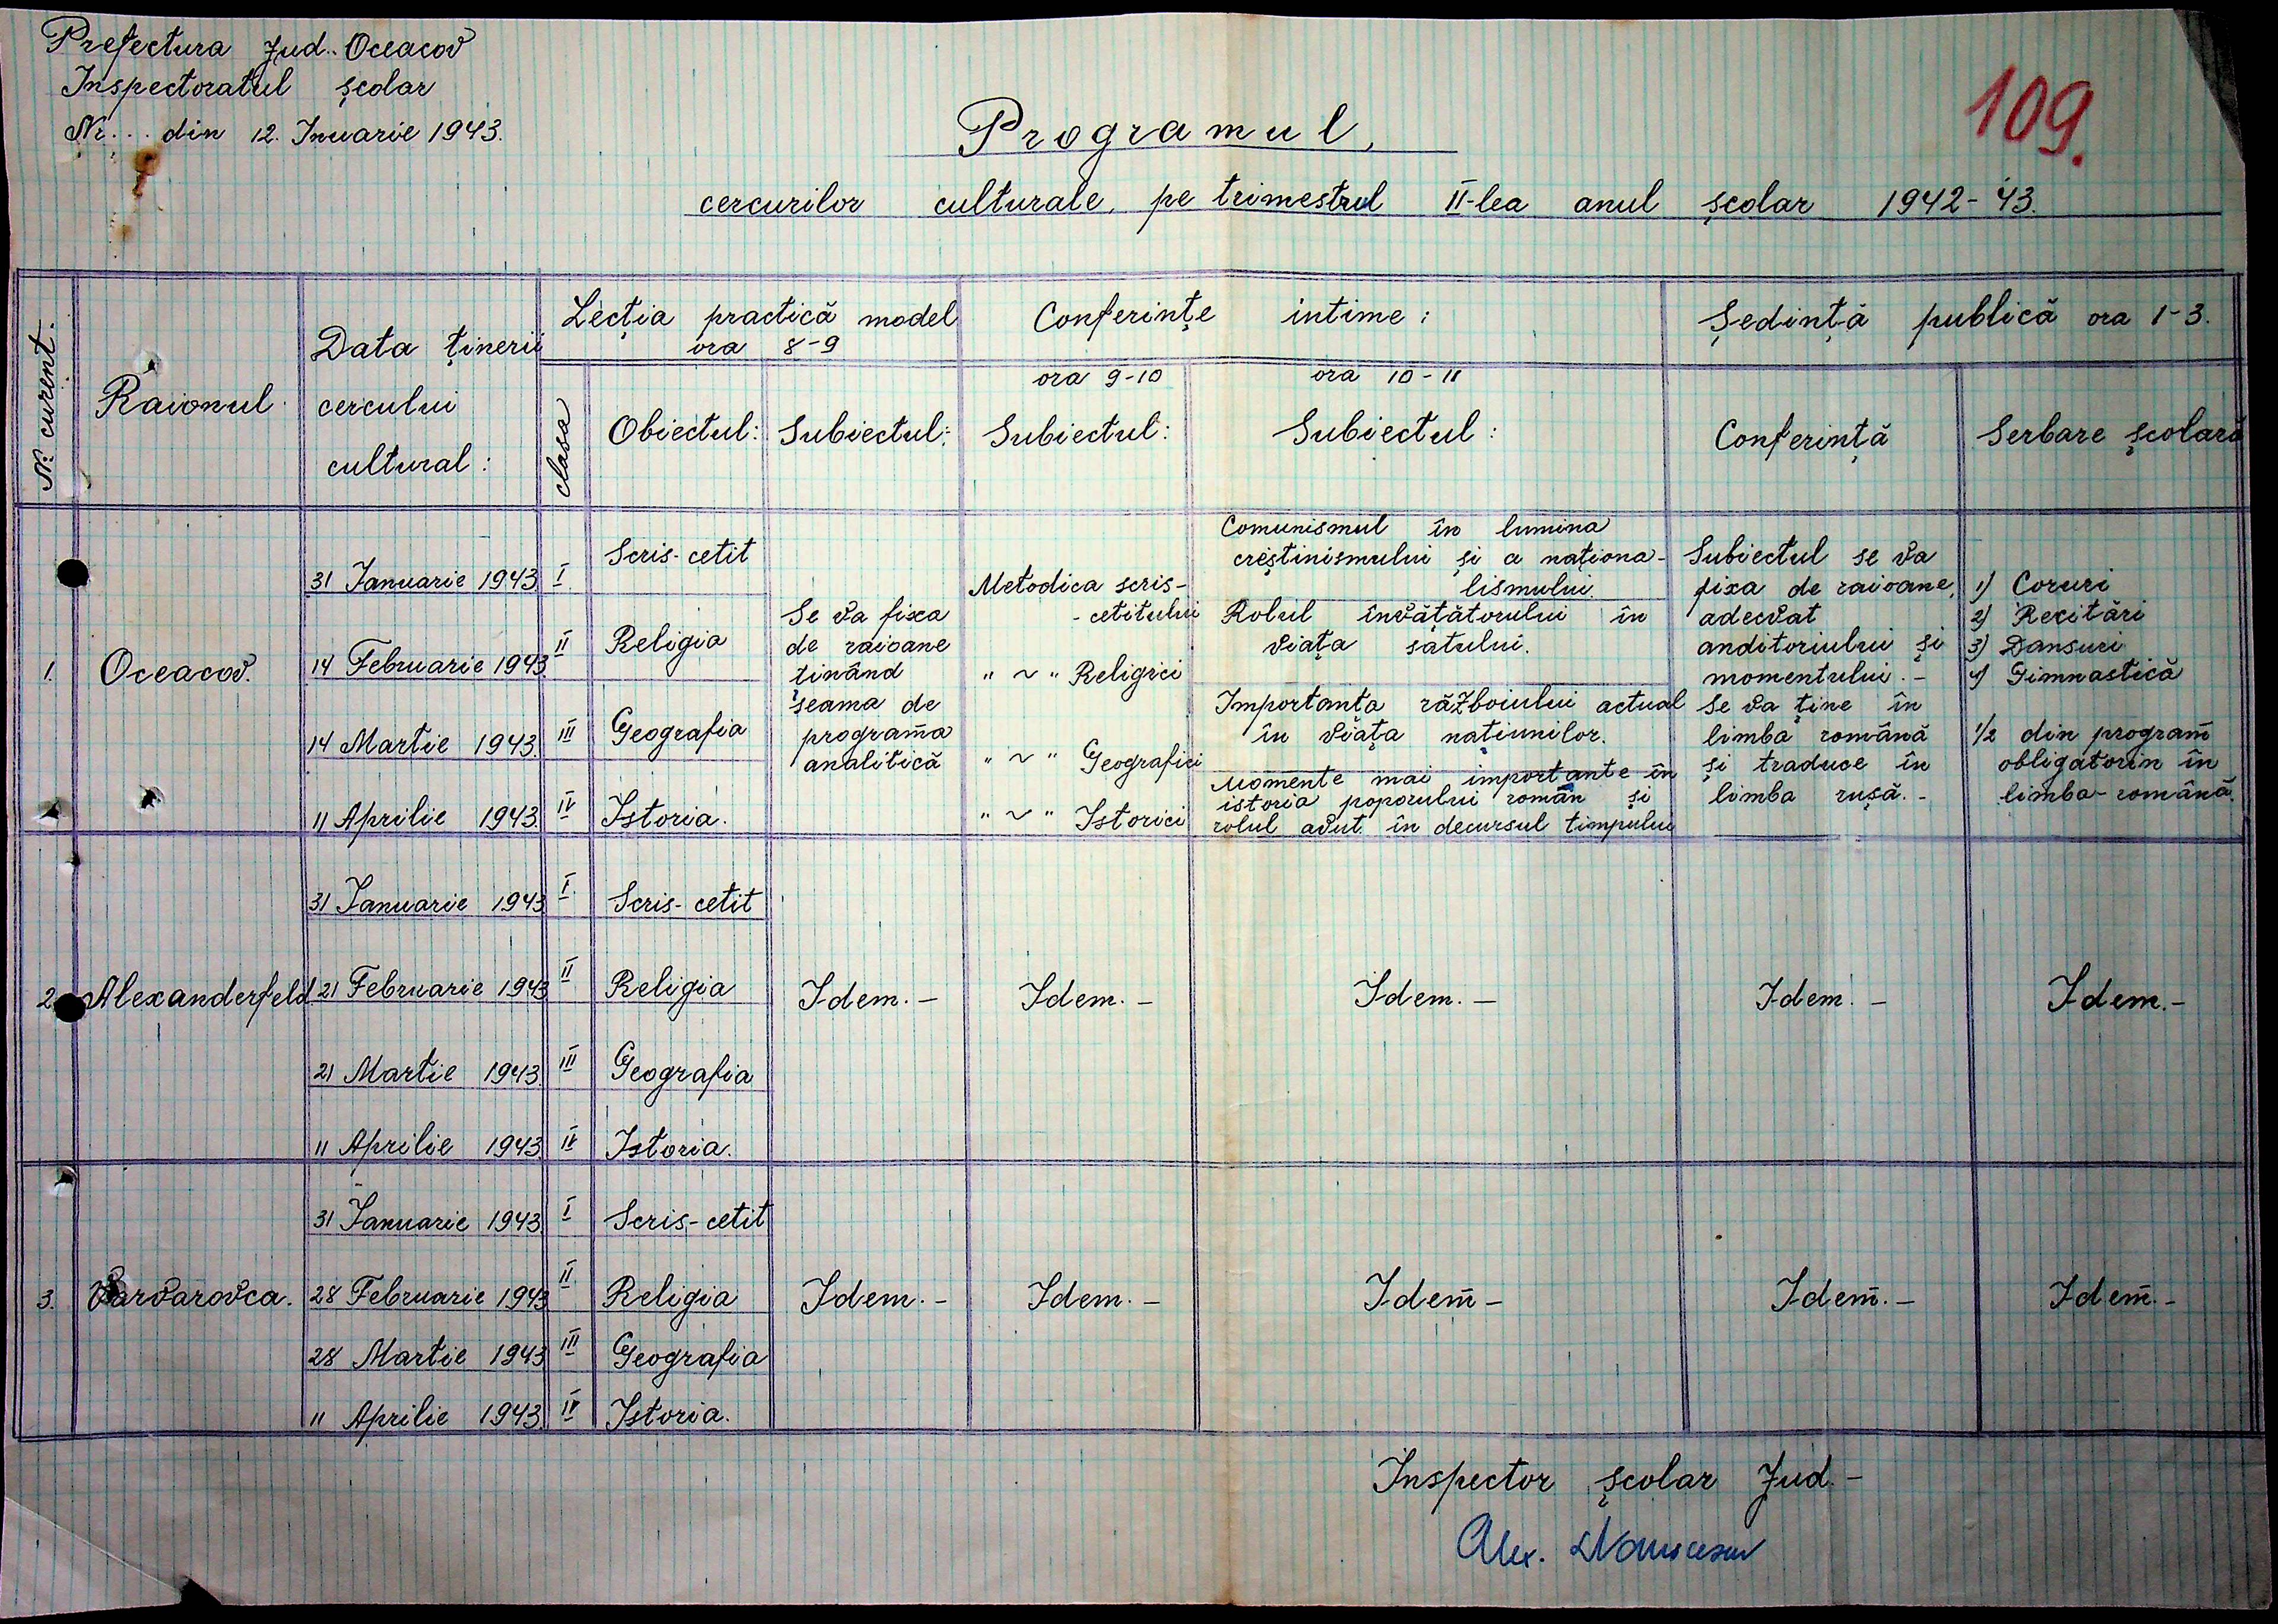 Prefectura Jud. Oceacov
Inspectoratul școlar
Nr... din 12. Inuarie 1943.
109.
Programul,
cercurilor culturale, pe trimestrul II-lea anul școlar 1942-43.
Nr. curent.
Raionul
Data ținerii
cercului
cultural:
Lecția practică model
ora 8-9
clasa
Obiectul:
Subiectul:
Conferințe intime:
ora 9-10
Subiectul:
ora 10-11
Subiectul:
Ședință publică ora 1-3.
Conferință
Serbare școlară
1.
Oceacov.
31 Ianuarie 1943. I
14 Februarie 1943. II
14 Martie 1943. III
11 Aprilie 1943. IV
Scris-cetit
Religia
Geografia
Istoria.
Se va fixa
de raioane
ținând
seama de
programa
analitică
Metodica scris-
-cetitului
" ~ " Religiei
" ~ " Geografiei
" ~ " Istoriei
Comunismul în lumina
creștinismului și a naționa-
lismului.
Rolul învățătorului în
viața satului.
Importanța războiului actual
în viața națiunilor.
Momente mai importante în
istoria poporului român și
rolul avut în decursul timpului
Subiectul se va
fixa de raioane,
adecvat
auditoriului și
momentului.-
Se va ține în
limba română
și traduce în
limba rusă.-
1) Coruri
2) Recitări
3) Dansuri
4) Gimnastică
1/2 din program
obligatoriu în
limba-română.
2.
Alexanderfeld
31 Ianuarie 1943 I. Scris-cetit
21 Februarie 1943 II Religia
21 Martie 1943. III Geografia
11 Aprilie 1943. IV Istoria.
Idem.-
Idem.-
Idem.-
Idem.-
Idem.-
3.
Varvarovca.
31 Ianuarie 1943. I Scris-cetit
28 Februarie 1943 II. Religia
28 Martie 1943 III Geografia
11 Aprilie 1943. IV Istoria.
Idem.-
Idem.-
Idem-
Idem.-
Idem.-
Inspector școlar Jud.-
Alex.